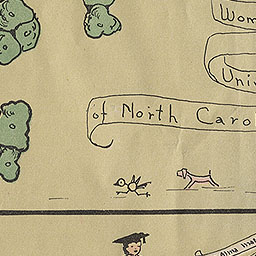 Wom
Uni
of North Carol
Alma mat